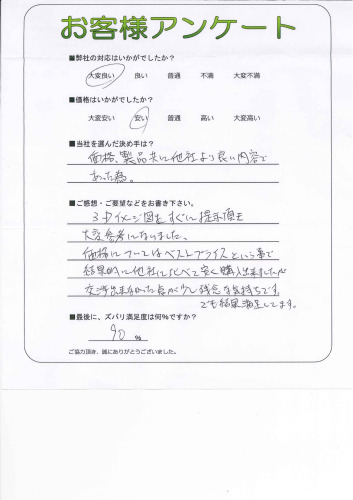 お客様アンケート
■弊社の対応はいかがでしたか？
大変良い 良い 普通 不満 大変不満
■価格はいかがでしたか？
大変安い 安い 普通 高い 大変高い
■当社を選んだ決め手は？
価格、製品共に他社より良い内容で
あった為。
■ご感想・ご要望などをお書き下さい。
3Dイメージ図をすぐに提示頂き
大変参考になりました。
価格についてはベストプライスという事で
結果的に他社に比べて安く購入出来ましたが
交渉出来なかった点が少し残念な気持ちです。
でも結果満足してます。
■最後に、ズバリ満足度は何％ですか？
90 %
ご協力頂き、誠にありがとうございました。